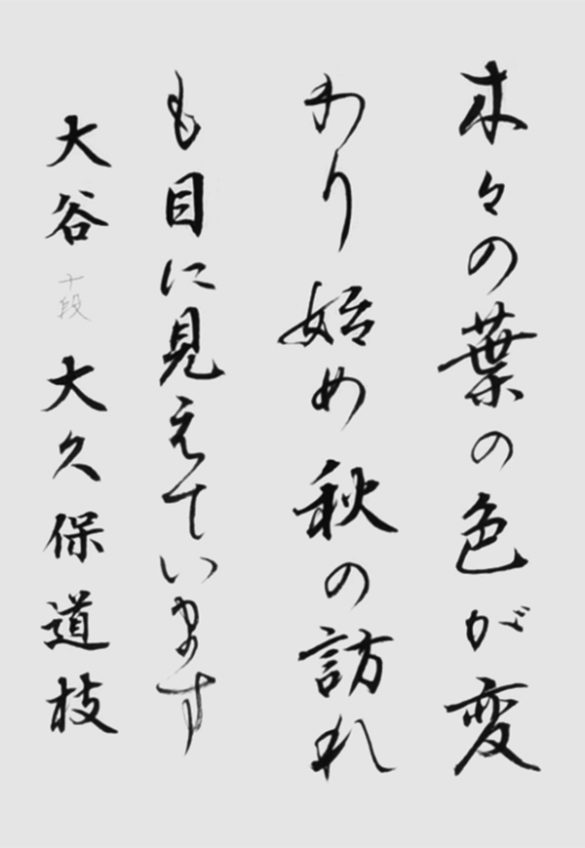 木々の葉の色が変
わり始め秋の訪れ
も目に見えています
大谷 十段 大久保道枝